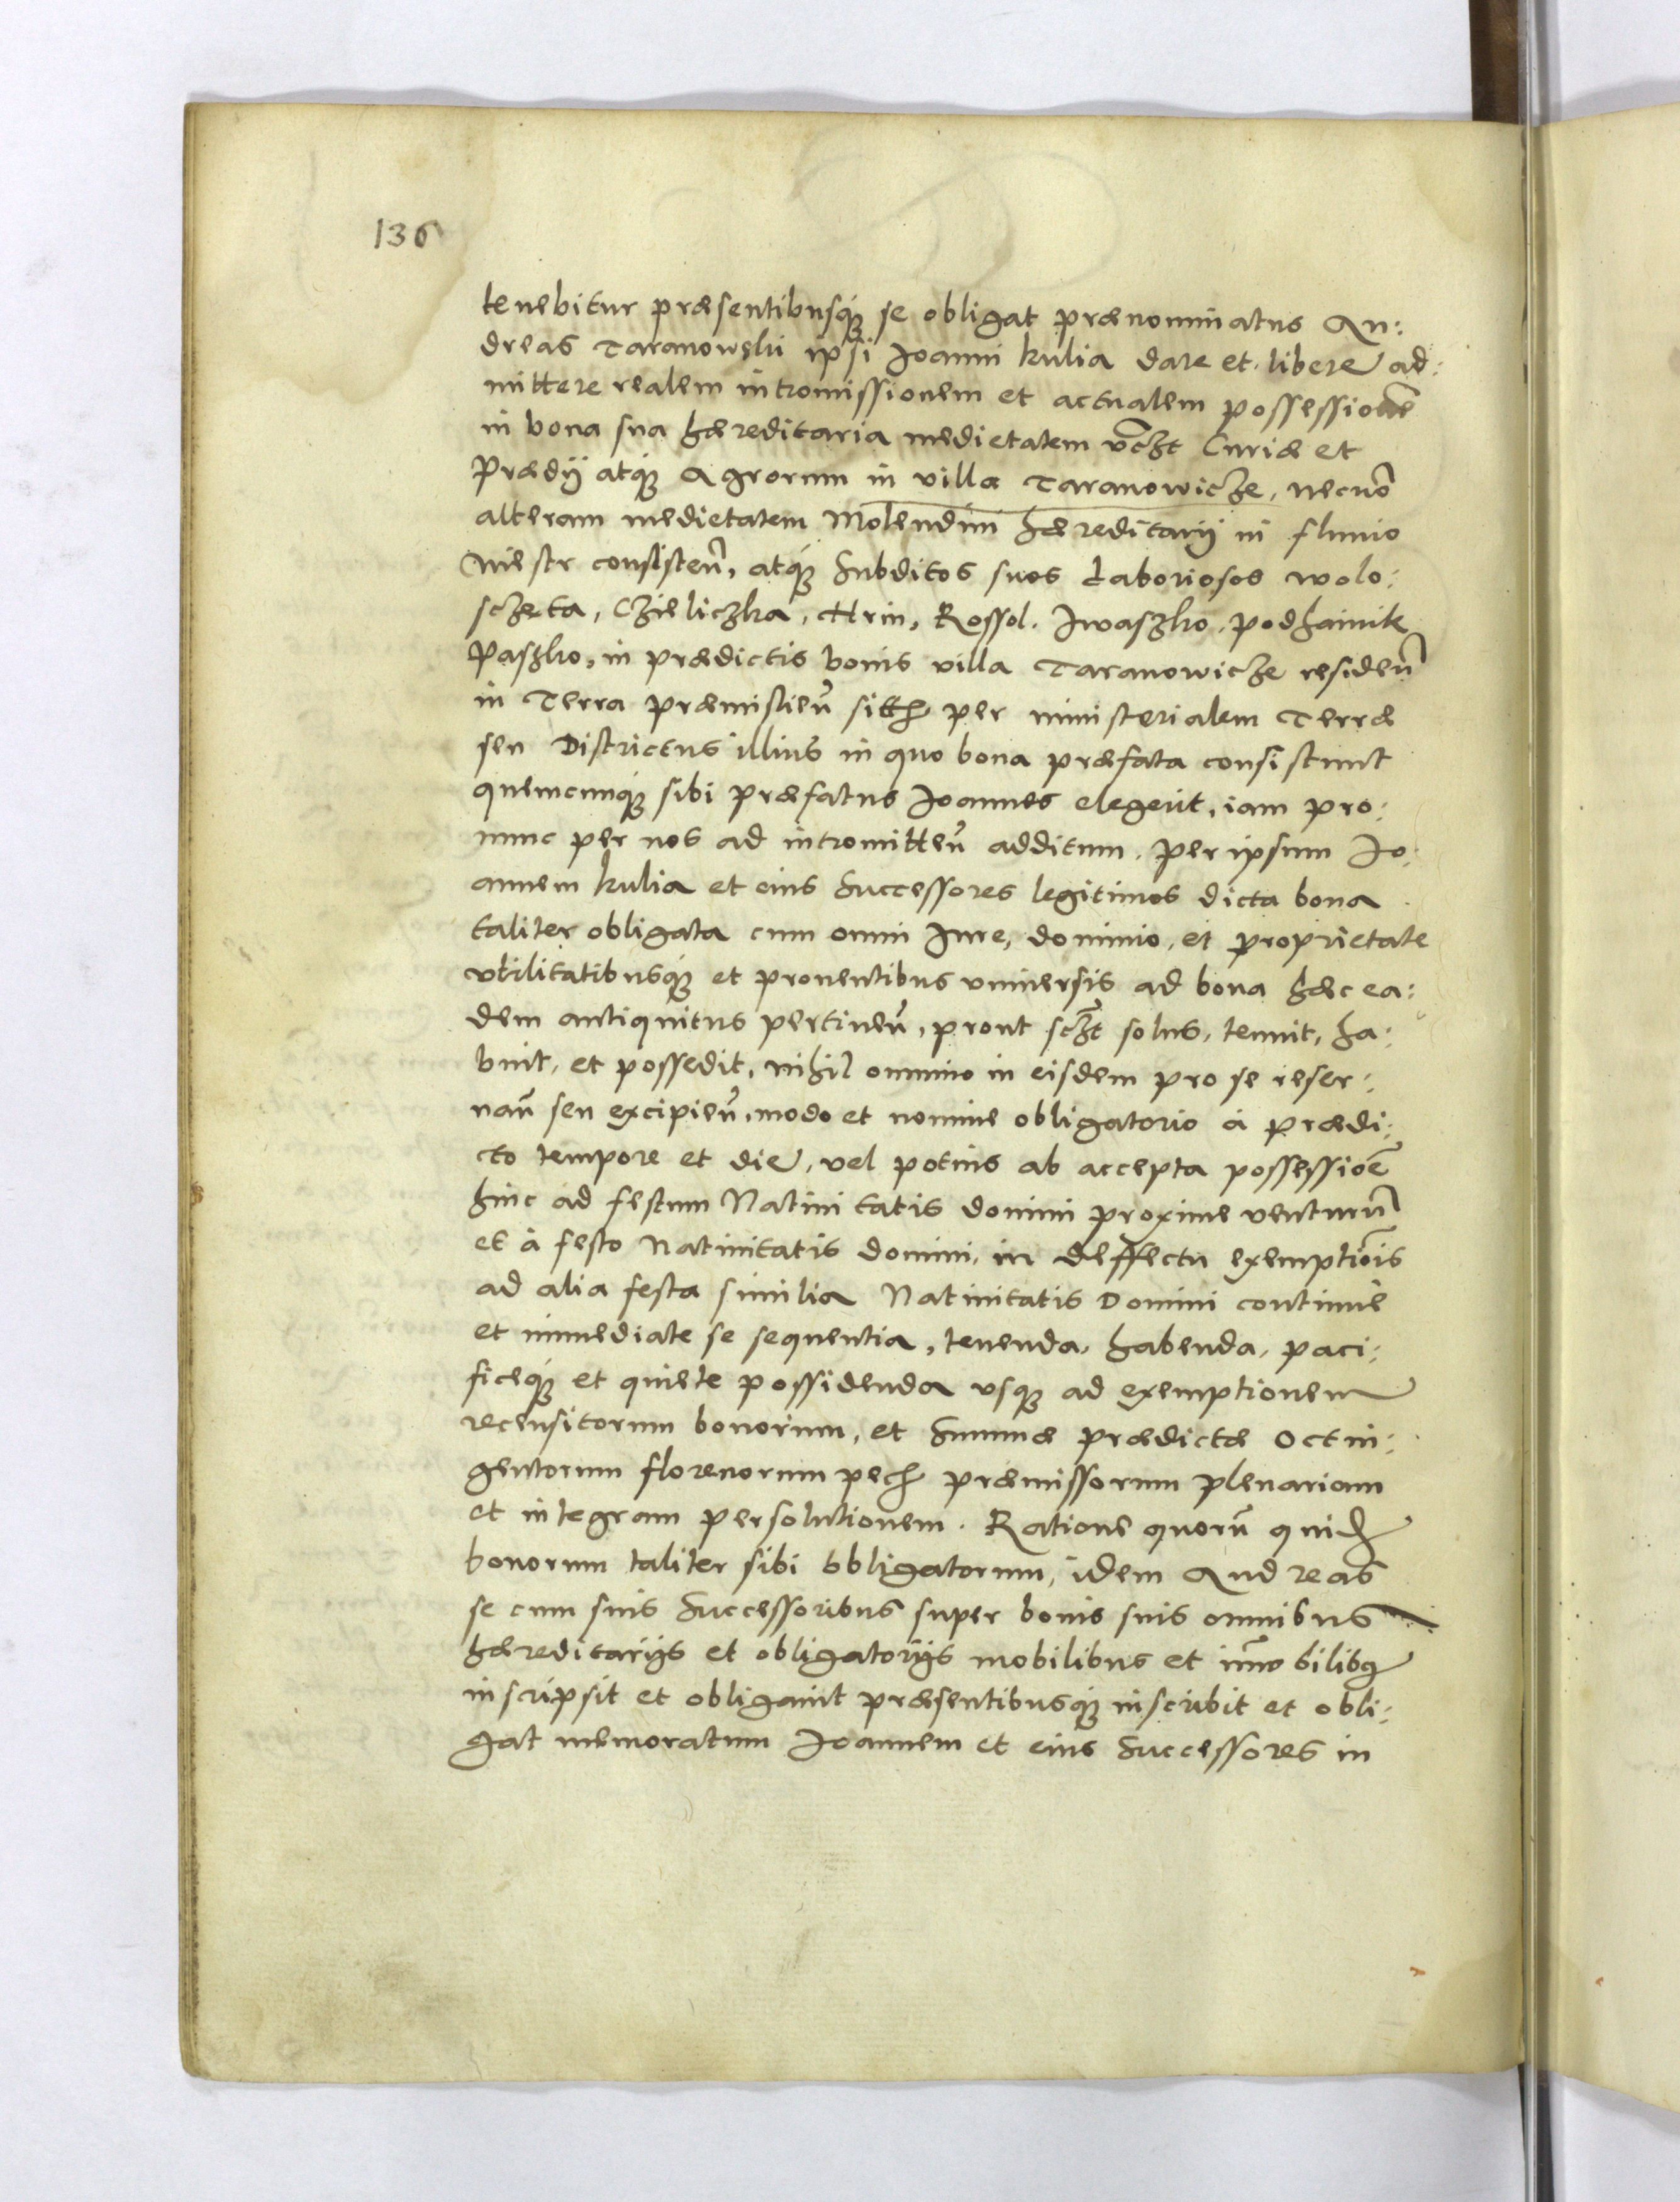 136
tenebitur præsentibusq́ue se obligat prænominatus An:
dreas Taranowski ipsi Joanni kulia dare et libere ad:
mittere realem intromissionem et actualem possessionē
in bona sua hæreditaria medietatem vc̄zt Curiæ et
Prædÿ atq́ue Agrorum in villa Taranowicze, necnō
alteram medietatem Molendini hæreditarÿ in fluuio
Niestr consisteñ, atq́ue Subditos suos Laboriosos wolo:
sczeta, Czieliczka, Hrin, Rossol, Jwaszko, Podhainik
Paszko, in prædictis bonis villa Taranowicze resideñ
in Terra Præmislieñ sitt per ministerialem Terræ
seu Districtus illius in quo bona præfata consistunt
quemcunq́ue sibi præfatus Joannes elegerit, iam pro:
nunc per nos ad intromitteñ additum. Per ipsum Jo:
annem kulia et eius Successores legitimos dicta bona
taliter obligata cum omni Jure, dominio, et proprietate
vtilitatibusq́ue et prouentibus vniuersis ad bona hæc ea:
dem antiquitus pertineñ, prout sc̄zt solus, tenuit, ha:
buit, et possedit, nihil omnino in eisdem pro se reser:
uañ seu excipieñ, modo et nomine obligatorio à prædi:
cto tempore et die, vel potius ab accepta possessiōe
hinc ad festum Natiuitatis domini proxime venturū
et à festo Natiuitatis domini, in deffectu exemptiōis
ad alia festa similia Natiuitatis Domini continuè
et immediate se sequentia, tenenda, habenda, paci:
ficeq́ue et quiete possidenda vsque ad exemptionem
recensitorum bonorum, et Summæ prædictæ Octin:
gentorum florenorum pech præmissorum plenariam
et integram persolutionem. Ratione quorū quid
bonorum taliter sibi obligatorum, idem Andreas
se cum suis Successoribus super bonis suis omnibus
hæreditarÿs et obligatorÿs mobilibus et im̄obilibus
inscripsit et obligauit præsentibusq́ue inscribit et obli:
gat memoratum Joannem et eius Successores in